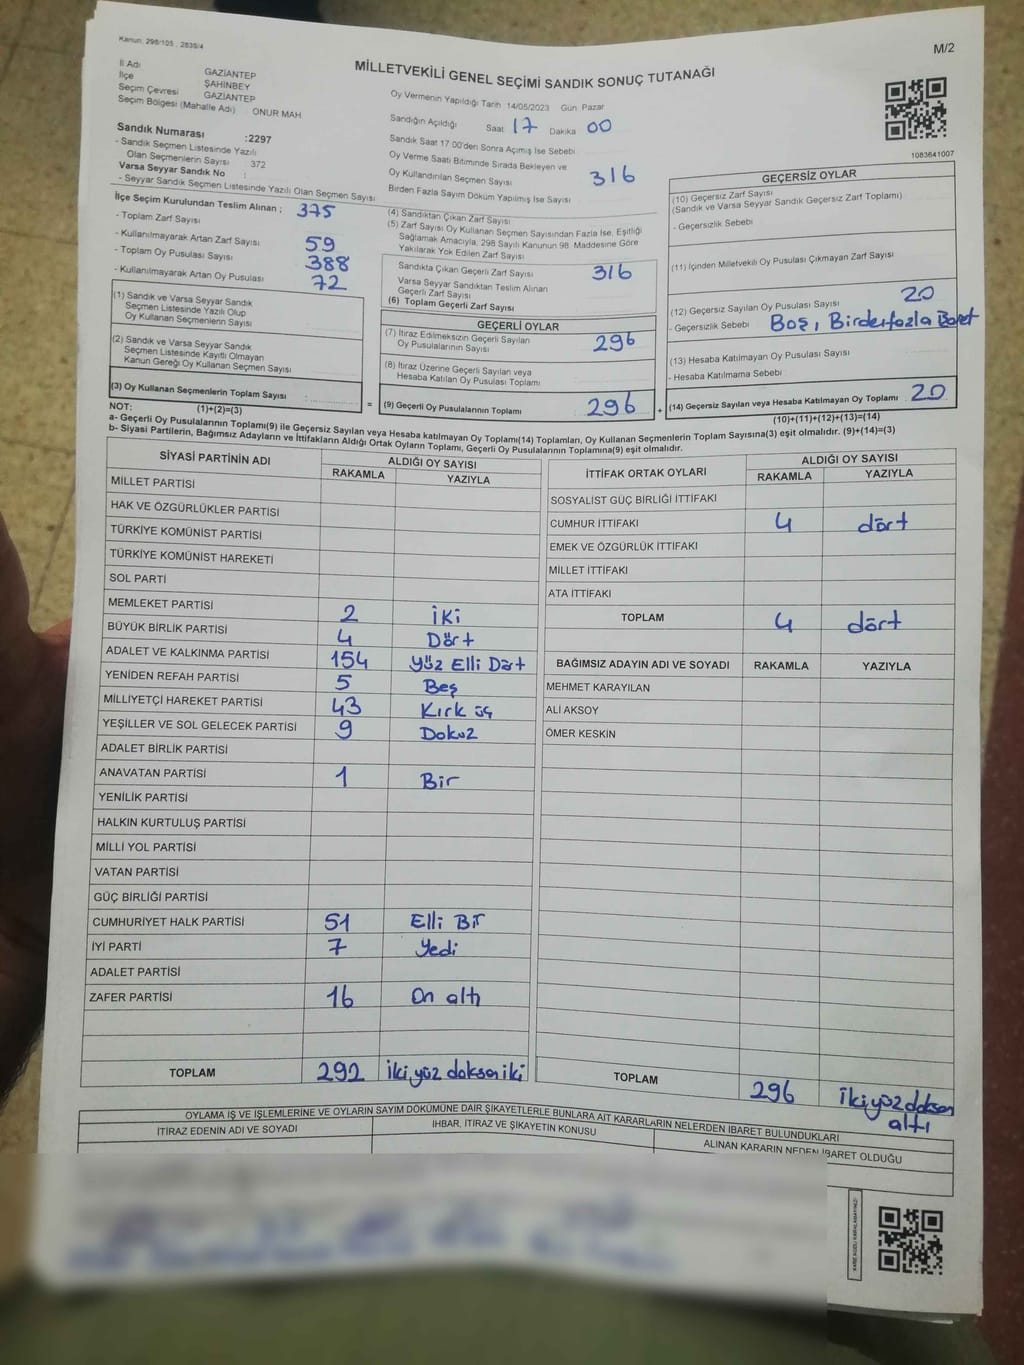 Kanun: 298/105, 2839/4
M/2
MİLLETVEKİLİ GENEL SEÇİMİ SANDIK SONUÇ TUTANAĞI
İl Adı GAZİANTEP
İlçe ŞAHİNBEY
Seçim Çevresi GAZİANTEP
Seçim Bölgesi (Mahalle Adı) ONUR MAH
Sandık Numarası :2297
- Sandık Seçmen Listesinde Yazılı
Olan Seçmenlerin Sayısı 372
Varsa Seyyar Sandık No :
- Seyyar Sandık Seçmen Listesinde Yazılı Olan Seçmen Sayısı
Oy Vermenin Yapıldığı Tarih 14/05/2023 Gün Pazar
Sandığın Açıldığı Saat 17 Dakika 00
Sandık Saat 17.00'den Sonra Açımış İse Sebebi
Oy Verme Saati Bitiminde Sırada Bekleyen ve
Oy Kullandırılan Seçmen Sayısı 316
Birden Fazla Sayım Döküm Yapılmış İse Sayısı
1083641007
İlçe Seçim Kurulundan Teslim Alınan ; 375
- Toplam Zarf Sayısı
- Kullanılmayarak Artan Zarf Sayısı 59
- Toplam Oy Pusulası Sayısı 388
- Kullanılmayarak Artan Oy Pusulası 72
(1) Sandık ve Varsa Seyyar Sandık
Seçmen Listesinde Yazılı Olup
Oy Kullanan Seçmenlerin Sayısı
(2) Sandık ve Varsa Seyyar Sandık
Seçmen Listesinde Kayıtlı Olmayan
Kanun Gereği Oy Kullanan Seçmen Sayısı
(3) Oy Kullanan Seçmenlerin Toplam Sayısı :
(1)+(2)=(3)
(4) Sandıktan Çıkan Zarf Sayısı
(5) Zarf Sayısı Oy Kullanan Seçmen Sayısından Fazla İse, Eşitliği
Sağlamak Amacıyla, 298 Sayılı Kanunun 98. Maddesine Göre
Yakılarak Yok Edilen Zarf Sayısı
Sandıkta Çıkan Geçerli Zarf Sayısı 316
Varsa Seyyar Sandıktan Teslim Alınan
Geçerli Zarf Sayısı
(6) Toplam Geçerli Zarf Sayısı
GEÇERLİ OYLAR
(7) İtiraz Edilmeksizin Geçerli Sayılan
Oy Pusulalarının Sayısı 296
(8) İtiraz Üzerine Geçerli Sayılan veya
Hesaba Katılan Oy Pusulası Toplamı
= (9) Geçerli Oy Pusulalarının Toplamı 296
GEÇERSİZ OYLAR
(10) Geçersiz Zarf Sayısı
(Sandık ve Varsa Seyyar Sandık Geçersiz Zarf Toplamı)
- Geçersizlik Sebebi
(11) İçinden Milletvekili Oy Pusulası Çıkmayan Zarf Sayısı
(12) Geçersiz Sayılan Oy Pusulası Sayısı 20
- Geçersizlik Sebebi Boş, Birden fazla
(13) Hesaba Katılmayan Oy Pusulası Sayısı
- Hesaba Katılmama Sebebi
+ (14) Geçersiz Sayılan veya Hesaba Katılmayan Oy Toplamı 20
(10)+(11)+(12)+(13)=(14)
NOT:
a- Geçerli Oy Pusulalarının Toplamı(9) ile Geçersiz Sayılan veya Hesaba katılmayan Oy Toplamı(14) Toplamları, Oy Kullanan Seçmenlerin Toplam Sayısına(3) eşit olmalıdır. (9)+(14)=(3)
b- Siyasi Partilerin, Bağımsız Adayların ve İttifakların Aldığı Ortak Oyların Toplamı, Geçerli Oy Pusulalarının Toplamına(9) eşit olmalıdır.
SİYASİ PARTİNİN ADI ALDIĞI OY SAYISI
RAKAMLA YAZIYLA
MİLLET PARTİSİ
HAK VE ÖZGÜRLÜKLER PARTİSİ
TÜRKİYE KOMÜNİST PARTİSİ
TÜRKİYE KOMÜNİST HAREKETİ
SOL PARTİ
MEMLEKET PARTİSİ 2 iki
BÜYÜK BİRLİK PARTİSİ 4 Dört
ADALET VE KALKINMA PARTİSİ 154 Yüz Elli Dört
YENİDEN REFAH PARTİSİ 5 Beş
MİLLİYETÇİ HAREKET PARTİSİ 43 Kırk üç
YEŞİLLER VE SOL GELECEK PARTİSİ 9 Dokuz
ADALET BİRLİK PARTİSİ
ANAVATAN PARTİSİ 1 Bir
YENİLİK PARTİSİ
HALKIN KURTULUŞ PARTİSİ
MİLLİ YOL PARTİSİ
VATAN PARTİSİ
GÜÇ BİRLİĞİ PARTİSİ
CUMHURİYET HALK PARTİSİ 51 Elli Bir
İYİ PARTİ 7 Yedi
ADALET PARTİSİ
ZAFER PARTİSİ 16 On altı
TOPLAM 292 iki yüz doksan iki
İTTİFAK ORTAK OYLARI ALDIĞI OY SAYISI
RAKAMLA YAZIYLA
SOSYALİST GÜÇ BİRLİĞİ İTTİFAKI
CUMHUR İTTİFAKI 4 dört
EMEK VE ÖZGÜRLÜK İTTİFAKI
MİLLET İTTİFAKI
ATA İTTİFAKI
TOPLAM 4 dört
BAĞIMSIZ ADAYIN ADI VE SOYADI RAKAMLA YAZIYLA
MEHMET KARAYILAN
ALİ AKSOY
ÖMER KESKİN
TOPLAM 296 iki yüz doksan
altı
OYLAMA İŞ VE İŞLEMLERİNE VE OYLARIN SAYIM DÖKÜMÜNE DAİR ŞİKAYETLERLE BUNLARA AİT KARARLARIN NELERDEN İBARET BULUNDUKLARI
İTİRAZ EDENİN ADI VE SOYADI
İHBAR, İTİRAZ VE ŞİKAYETİN KONUSU
ALINAN KARARIN NEDEN İBARET OLDUĞU